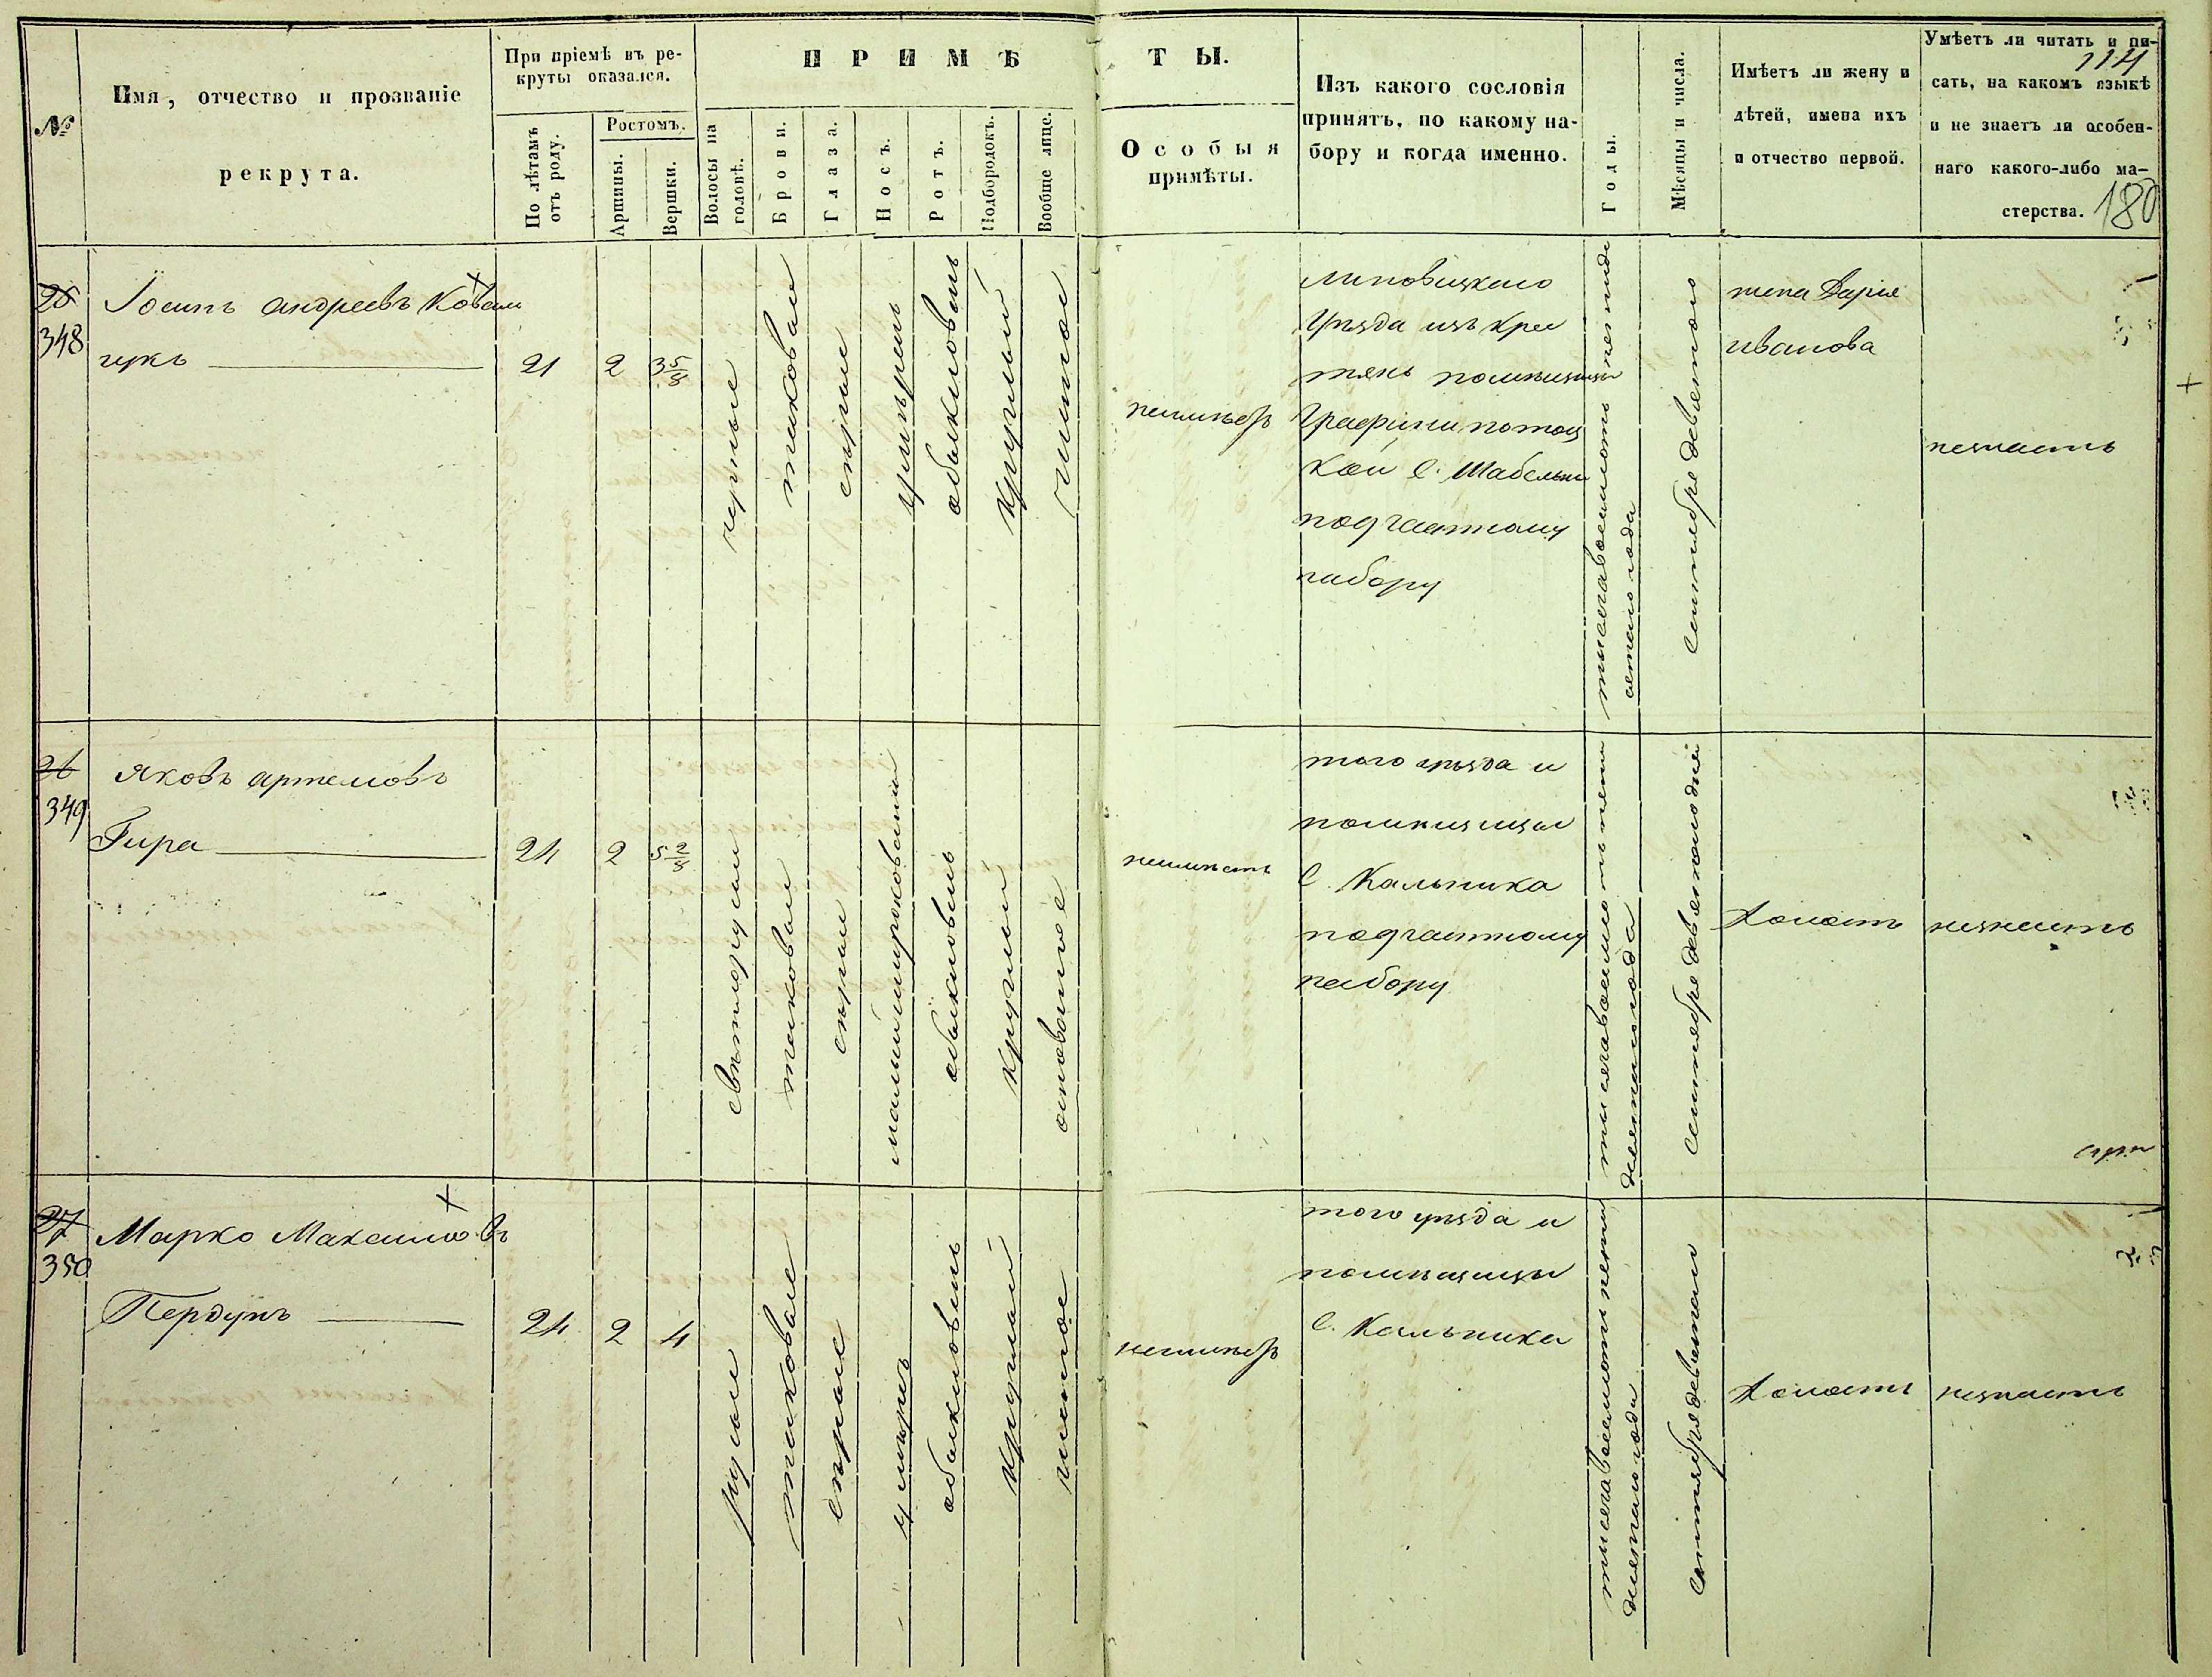 №
Имя, отчество и прозваніе
рекрута.
При пріемѣ въ ре-
круты оказался.
По лѣтамъ
отъ роду.
Ростомъ.
Аршины.
Вершки.
ПРИМѢ
ТЫ.
Волосы на
головѣ.
Брови.
Глаза.
Носъ.
Ротъ.
Подбородокъ.
Вообще лице.
Особыя
примѣты.
Изъ какого сословія
принятъ, по какому на-
бору и когда именно.
Годы.
Мѣсяцы и числа.
Имѣетъ ли жену и
дѣтей, имена ихъ
и отчество первой.
Умѣетъ ли читать и пи-
114
сать, на какомъ языкѣ
и не знаетъ ли особен-
наго какого-либо ма-
стерства.
180
348
андреевъ Ковал
чукъ
21
2
3 5/8
черные
таковые
серые
умѣренъ
обыкновенъ
круглый
чистое
неимѣетъ
Липовецкаго
уѣзда изъ крес
тянъ помѣщицы
Графини потоц
кой С. Шабельни
подчастному
набору
тысяча восемьсотъ
сентября девятого
жена Дарія
иванова
незнаетъ
26
349
Яковъ артемовъ
Гира
24
2
5 2/8
светлорусые
таковые
серые
обыкновенъ
круглый
неимѣетъ
того уѣзда и
помѣщицы
С. Кальника
подчастному
набору
сентября девятого дня
Холостъ
незнаетъ
27
350
Марко Максимовъ
Пердунъ
24
2
4
русые
таковые
серые
умѣренъ
обыкновенъ
круглый
чистое
неимѣетъ
того уѣзда и
помѣщицы
С. Кальника
сентября девятого
Холостъ
незнаетъ